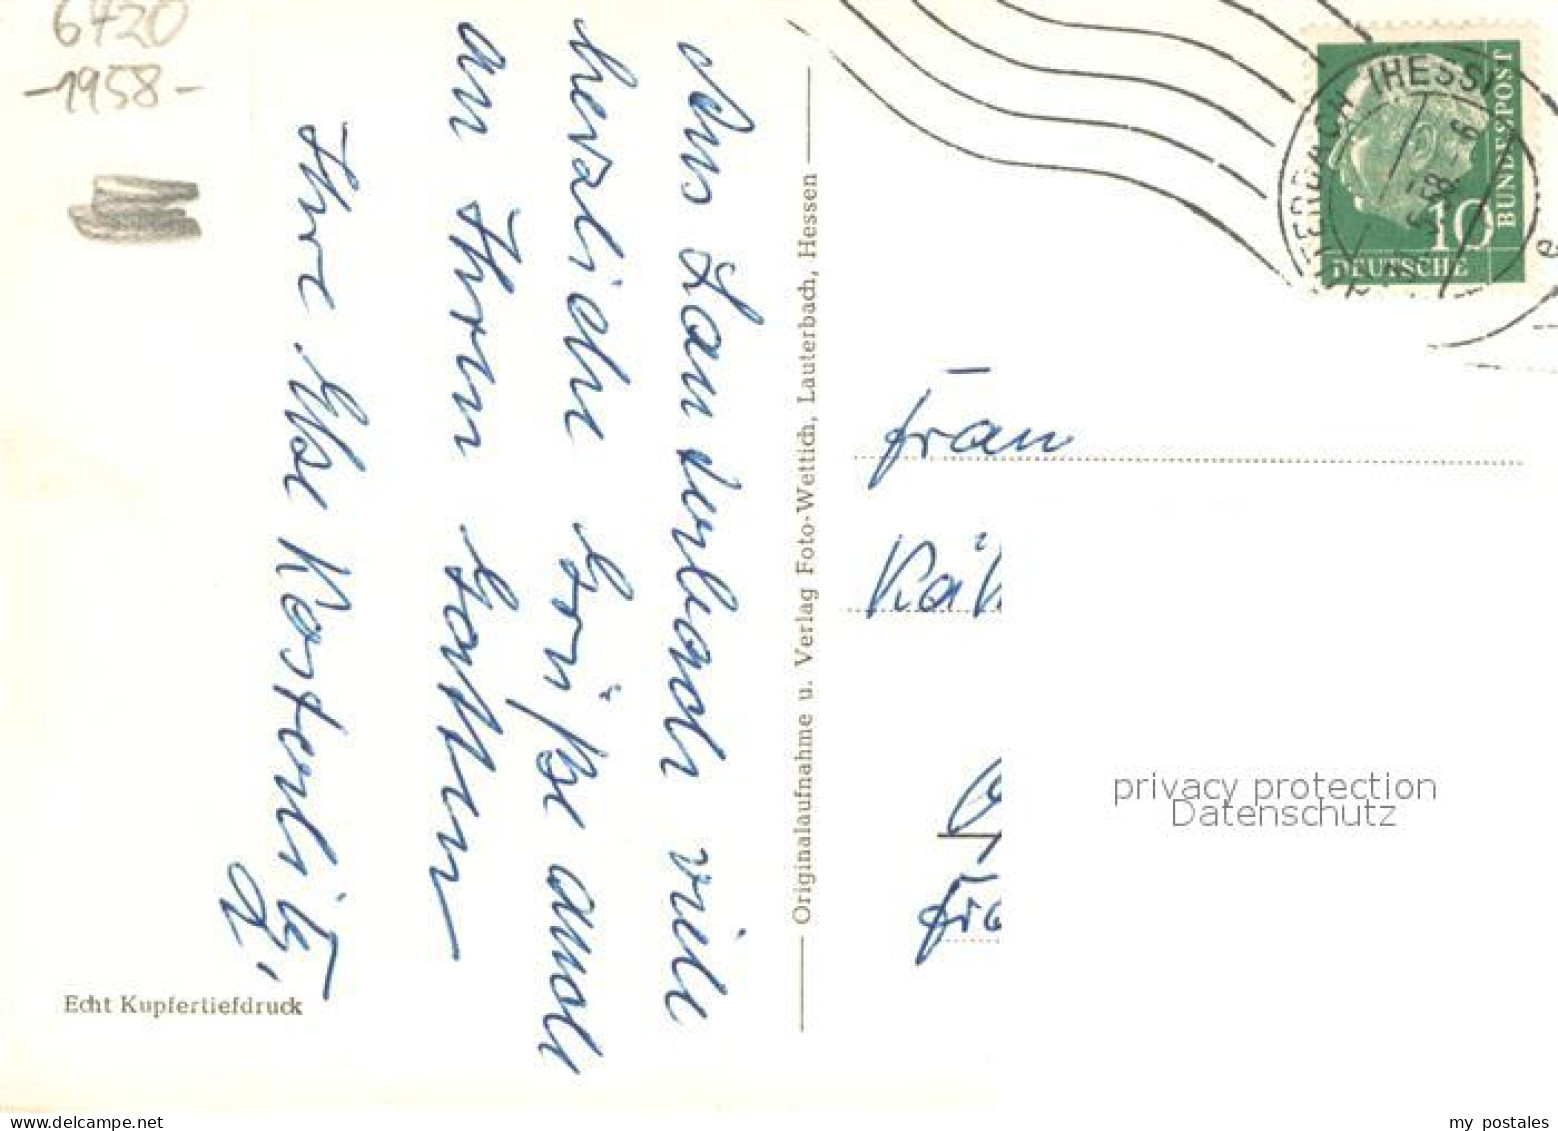 6420
-1958-
Aus Lauterbach viele
herzliche Grüße auch
an Ihren Gatten
Ihre Ilse
Echt Kupfertiefdruck
Originalaufnahme u. Verlag Foto-Wettich, Lauterbach, Hessen
(HESS)
DEUTSCHE
BUNDESPOST
10
Frau
privacy protection
Datenschutz
my postales